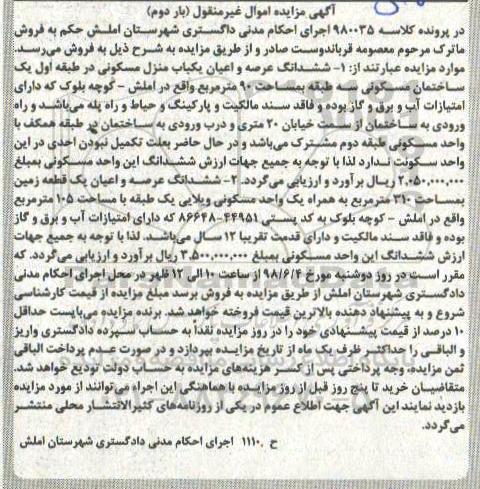 آگهی مزایده اموال غیرمنقول (بار دوم)
در پرونده کلاسه ۹۸۰۰۳۵ اجرای احکام مدنی دادگستری شهرستان املش حکم به فروش
ماترک مرحوم معصومه قرباندوست صادر و از طریق مزایده به شرح ذیل به فروش می‌رسد.
موارد مزایده عبارتند از: ۱- ششدانگ عرصه و اعیان یکباب منزل مسکونی در طبقه اول یک
ساختمان مسکونی سه طبقه بمساحت ۹۰ مترمربع واقع در املش - کوچه بلوک که دارای
امتیازات آب و برق و گاز بوده و فاقد سند مالکیت و پارکینگ و حیاط و راه پله می‌باشد و راه
ورودی به ساختمان از سمت خیابان ۲۰ متری و درب ورودی به ساختمان در طبقه همکف با
واحد مسکونی طبقه دوم مشترک می‌باشد و در حال حاضر بعلت تکمیل نبودن احدی در این
واحد سکونت ندارد لذا با توجه به جمیع جهات ارزش ششدانگ این واحد مسکونی بمبلغ
۲,۰۵۰,۰۰۰,۰۰۰ ریال برآورد و ارزیابی می‌گردد. ۲- ششدانگ عرصه و اعیان یک قطعه زمین
بمساحت ۳۱۰ مترمربع به همراه یک واحد مسکونی ویلایی یک طبقه با مساحت ۱۰۵ مترمربع
واقع در املش - کوچه بلوک به کد پستی ۴۴۹۵۱-۸۶۶۴۸ که دارای امتیازات آب و برق و گاز
بوده و فاقد سند مالکیت و دارای قدمت تقریبا ۱۲ سال می‌باشد. لذا با توجه به جمیع جهات
ارزش ششدانگ این واحد مسکونی بمبلغ ۳,۵۰۰,۰۰۰,۰۰۰ ریال برآورد و ارزیابی می‌گردد. که
مقرر است در روز دوشنبه مورخ ۹۸/۶/۴ از ساعت ۱۰ الی ۱۲ ظهر در محل اجرای احکام مدنی
دادگستری شهرستان املش از طریق مزایده به فروش برسد مبلغ مزایده از قیمت کارشناسی
شروع و به پیشنهاد دهنده بالاترین قیمت فروخته خواهد شد. برنده مزایده می‌بایست حداقل
۱۰ درصد از قیمت پیشنهادی خود را در روز مزایده نقداً به حساب سپرده دادگستری واریز
و الباقی را حداکثر ظرف یک ماه از تاریخ مزایده بپردازد و در صورت عدم پرداخت الباقی
ثمن مزایده، وجه پرداختی پس از کسر هزینه‌های مزایده به حساب دولت تودیع خواهد شد.
متقاضیان خرید تا پنج روز قبل از روز مزایده با هماهنگی این اجراء می‌توانند از مورد مزایده
بازدید نمایند این آگهی جهت اطلاع عموم در یکی از روزنامه‌های کثیرالانتشار محلی منتشر
می‌گردد.
ح ۱۱۱۰ اجرای احکام مدنی دادگستری شهرستان املش